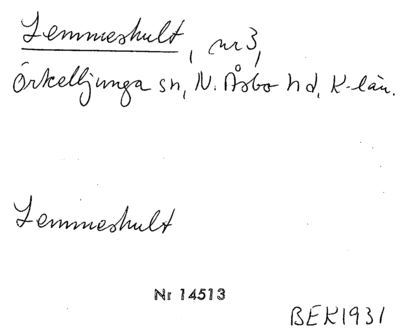 Lemmeshult, nr 3,
Örkelljunga sn, N. Åsbo hd, K-län.
Lemmeshult
Nr 14513
BEK1931